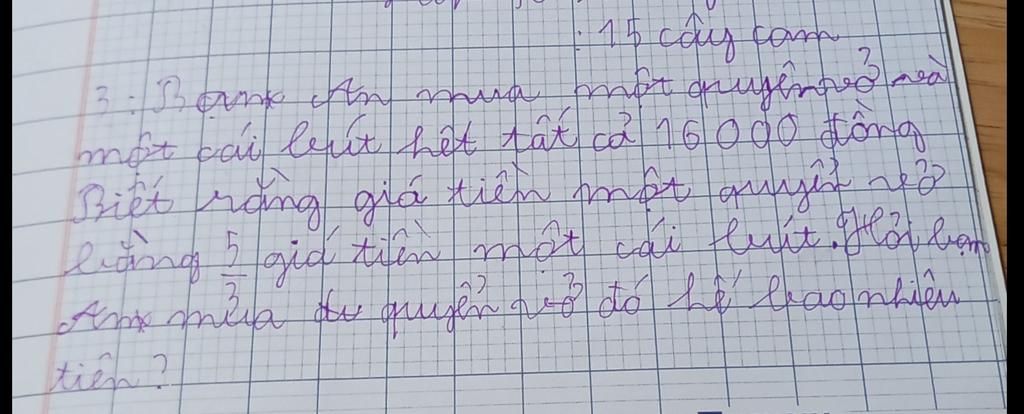 15 cây cam
3: Bạn An mua một quyển vở và
một cái bút hết tất cả 16000 đồng
Biết rằng giá tiền một quyển vở
bằng 5/3 giá tiền một cái bút. Hỏi bạn
An mua quyển vở đó hế bao nhiêu
tiền?